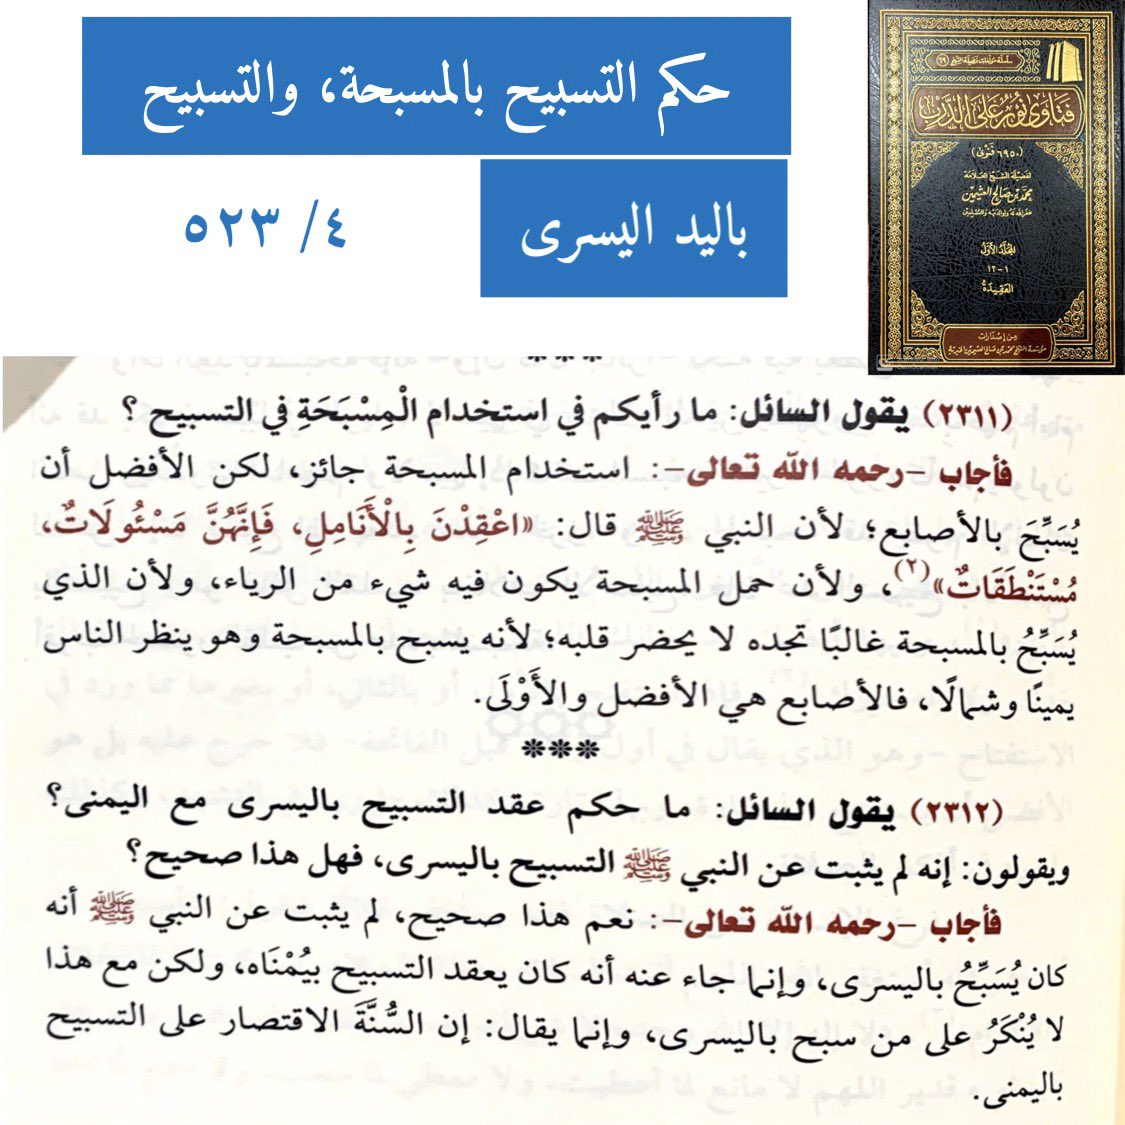 حكم التسبيح بالمسبحة، والتسبيح
باليد اليسرى
٤/ ٥٢٣
فتاوى نور على الدرب
(٦٩٥٠ فتوى)
لفضيلة الشيخ العلامة
محمد بن صالح العثيمين
غفر الله له ولوالديه وللمسلمين
المجلد الأول
١-١٢
العقيدة
من إصدارات
مؤسسة الشيخ محمد بن صالح العثيمين الخيرية
***
(٢٣١١) يقول السائل: ما رأيكم في استخدام الْمِسْبَحَةِ في التسبيح؟
فأجاب -رحمه الله تعالى-: استخدام المسبحة جائز، لكن الأفضل أن
يُسَبِّحَ بالأصابع؛ لأن النبي ﷺ قال: «اعْقِدْنَ بِالْأَنَامِلِ، فَإِنَّهُنَّ مَسْئُولَاتٌ،
مُسْتَنْطَقَاتٌ»(٢)، ولأن حمل المسبحة يكون فيه شيء من الرياء، ولأن الذي
يُسَبِّحُ بالمسبحة غالبًا تجده لا يحضر قلبه؛ لأنه يسبح بالمسبحة وهو ينظر الناس
يمينًا وشمالًا، فالأصابع هي الأفضل والأَوْلَى.
***
(٢٣١٢) يقول السائل: ما حكم عقد التسبيح باليسرى مع اليمنى؟
ويقولون: إنه لم يثبت عن النبي ﷺ التسبيح باليسرى، فهل هذا صحيح؟
فأجاب -رحمه الله تعالى-: نعم هذا صحيح، لم يثبت عن النبي ﷺ أنه
كان يُسَبِّحُ باليسرى، وإنما جاء عنه أنه كان يعقد التسبيح بيُمْنَاه، ولكن مع هذا
لا يُنْكَرُ على من سبح باليسرى، وإنما يقال: إن السُّنَّةَ الاقتصار على التسبيح
باليمنى.